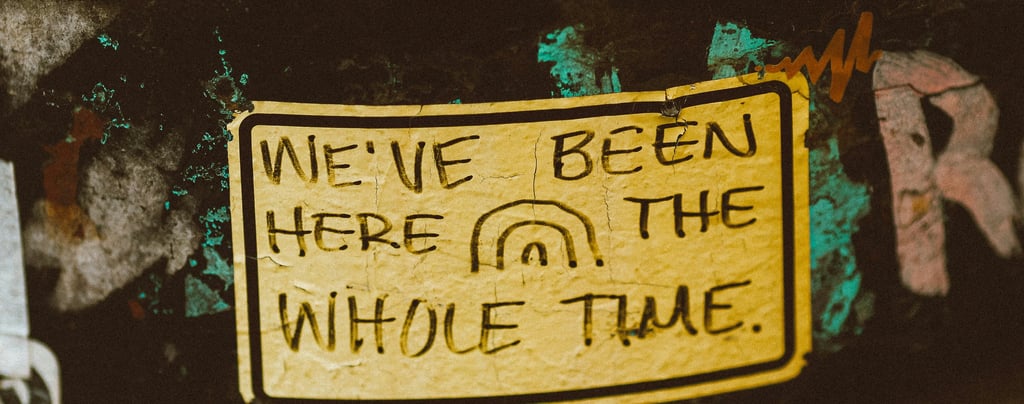 WE'VE BEEN
HERE THE
WHOLE TIME.
R